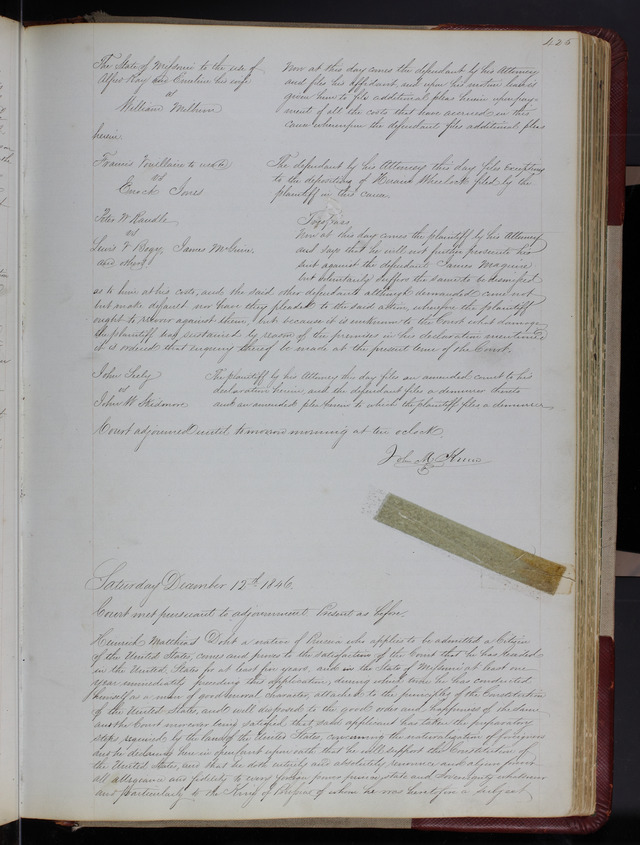 425
The State of Missouri to the use of
Alfred Kay and Emeline his wife
vs
William Milburn
Now at this day comes the defendant by his Attorney
and files his affidavit, and upon his motion leave is
given him to file additional pleas herein upon pay-
ment of all the costs that have accrued in this
cause whereupon the defendant files additional pleas
herein.
Francis to use &c
vs
Enoch Ives
The defendant by his Attorney this day files exceptions
to the deposition of Hiram Wheelock filed by the
plaintiff in this cause
Peter W Randle
vs
Lewis V Bogy, James McGuire
and others
Trespass
Now at this day comes the plaintiff by his Attorney
and says that he will not further prosecute his
suit against the defendant James Maguire
but voluntarily suffers the same to be dismissed
as to him at his costs, and the said other defendants although demanded came not
but make default nor have they pleaded to the said action, wherefore the plaintiff
ought to recover against them, but because it is unknown to the Court what damages
the plaintiff has sustained by reason of the premises in his declaration mentioned
it is ordered that inquiry thereof be made at the present term of the Court.
John Seely
vs
John W Skidmore
The plaintiff by his Attorney this day files an amended count to his
declaration herein, and the defendant files a demurrer thereto
and an amended plea herein to which the plaintiff files a demurrer
Court adjourned until tomorrow morning at ten oclock
John M
Saturday December 12th 1846.
Court met pursuant to adjournment Present as before.
Heinrich Matthias a native of Prussia who applies to be admitted a Citizen
of the United States, comes and proves to the satisfaction of the Court that he has resided
in the United States for at least five years, and in the State of Missouri at least one
year immediately preceding this application, during which time he has conducted
himself as a man of good moral character, attached to the principles of the Constitution
of the United States, and well disposed to the good order and happiness of the same
and the Court moreover being satisfied that said applicant has taken the preparatory
steps required by the laws of the United States, concerning the naturalization of foreigners
and he declaring here in open Court upon oath that he will support the Constitution of
the United States, and that he doth entirely and absolutely renounce and abjure forever
all allegiance and fidelity to every foreign power prince, state and Sovereignty whatsoever
and particularly to the King of Prussia of whom he was heretofore a subject